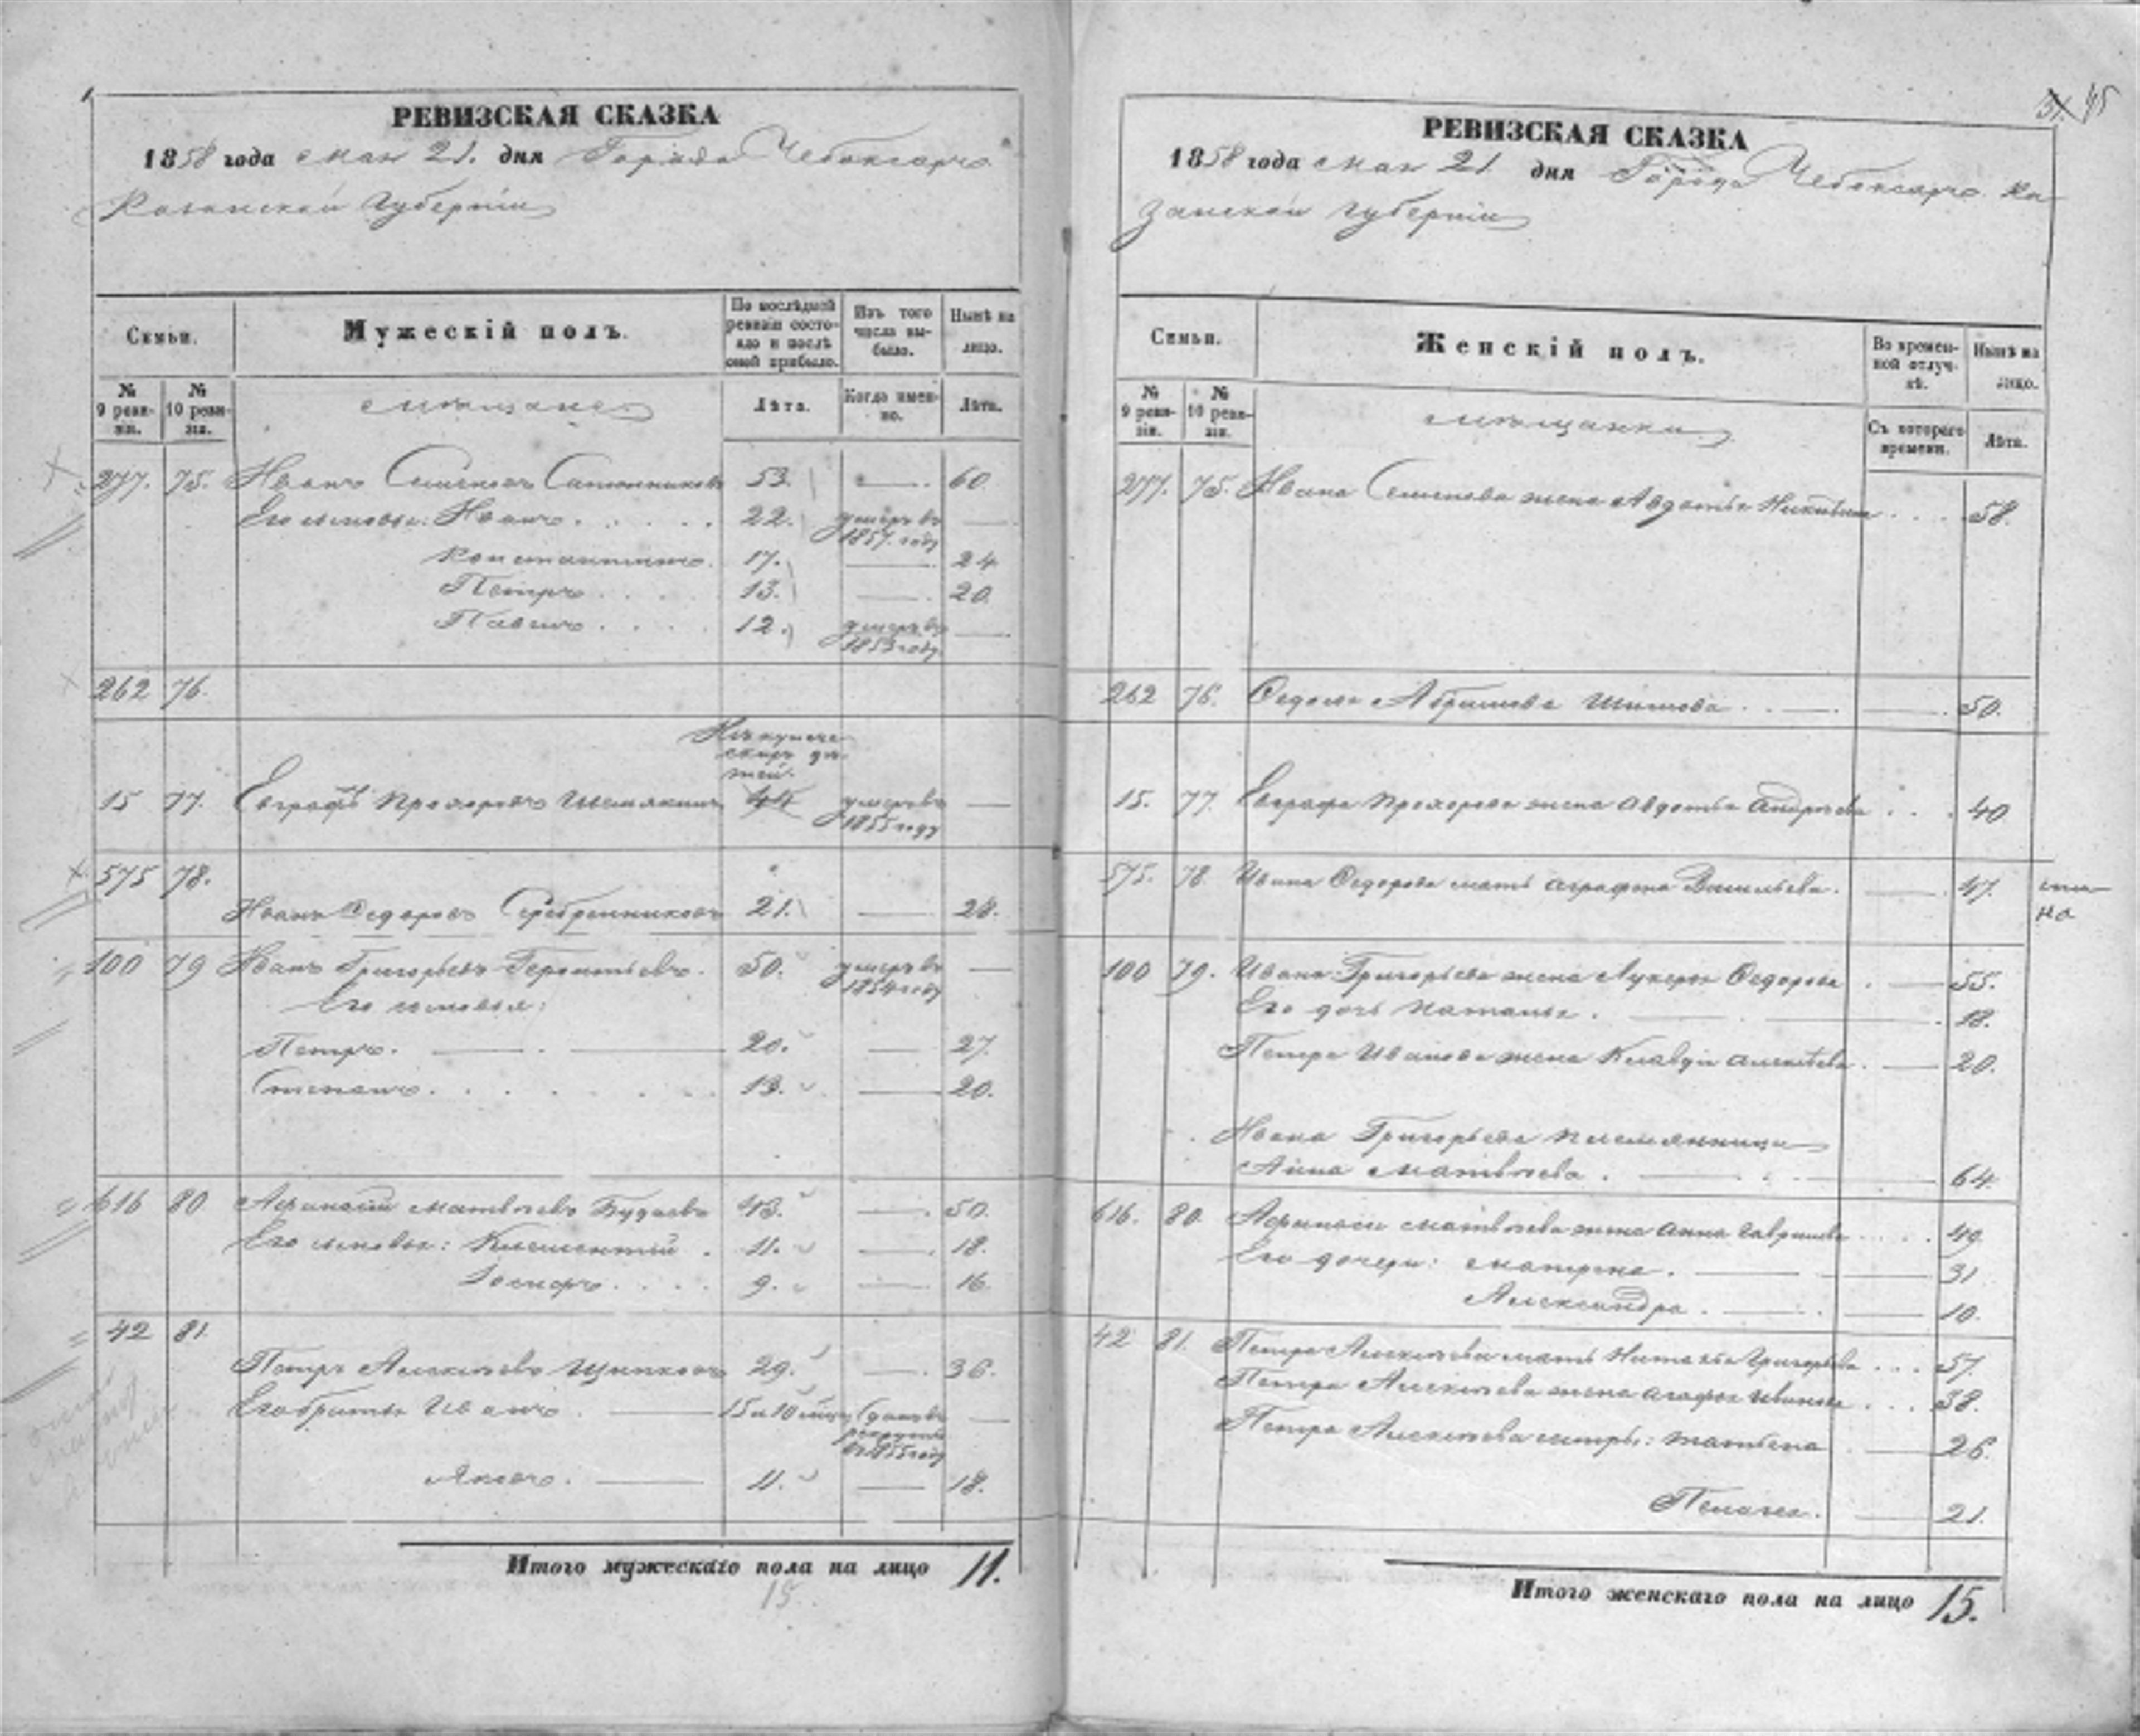 РЕВИЗСКАЯ СКАЗКА
1858 года мая 21. дня Города Чебоксаръ
Казанской Губерніи
Семьи.
Мужескій полъ.
По послѣдней ревизіи состояло и послѣ оной прибыло.
Изъ того числа выбыло.
Нынѣ на лицо.
№ 9 ревизіи.
№ 10 ревизіи.
мѣщане
Лѣта.
Когда именно.
Лѣта.
277. 75. Иванъ Семеновъ 53. 60.
Его сыновья: Иванъ 22. умеръ въ 1857. году
Константинъ. 17. 24
Петръ 13. 20.
Павелъ 12. умеръ въ 1853 году
262 76.
15 77. Евграфъ Прохоровъ Шемякинъ 44 умеръ въ 1855 году
575 78.
Иванъ Ѳедоровъ Серебренниковъ 21. 28.
100 79 Иванъ Григорьевъ Геронтьевъ. 50. умеръ въ 1854 году
Его сыновья:
Петръ. 20. 27.
Степанъ. 13. 20.
616 80 Афанасій Матвѣевъ Будаевъ 43. 50.
Его сыновья: Климентій. 11. 18.
Іосифъ 9. 16.
42 81.
Петръ Алексѣевъ Щипковъ 29. 36.
Его братья Иванъ 15 и 10 мѣц. Сданъ въ рекруты въ 1855 году
Яковъ. 11. 18.
Итого мужескаго пола на лицо 11.
15.
45
РЕВИЗСКАЯ СКАЗКА
1858 года мая 21 дня Города Чебоксаръ Ка
занской Губерніи
Семьи.
Женскій полъ.
Во временной отлучкѣ.
Нынѣ на лицо.
№ 9 ревизіи.
№ 10 ревизіи.
мѣщанки
Съ котораго времени.
Лѣта.
277. 75. Ивана Семенова жена Авдотья 58.
262 76. Абрамова 50.
15. 77. Евграфа Прохорова жена Авдотья Андреева 40
575. 78. Ивана Ѳедорова мать Аграфена Васильева. 47.
100 79. Ивана Григорьева жена Лукерья Ѳедорова 55.
Его дочь Наталья. 18.
Петра Иванова жена Клавдія Алексѣева 20.
Ивана Григорьева племянница
Анна Матвѣева. 64.
616. 80. Афанасія Матвѣева жена Анна Гаврилова 49.
Его дочери: Матрена. 31
Александра. 10.
42 81. Петра Алексѣева мать Наталья Григорьева 57.
Петра Алексѣева жена Агафья Иванова 38.
Петра Алексѣева сестры: Татьяна 26.
Пелагея. 21.
Итого женскаго пола на лицо 15.